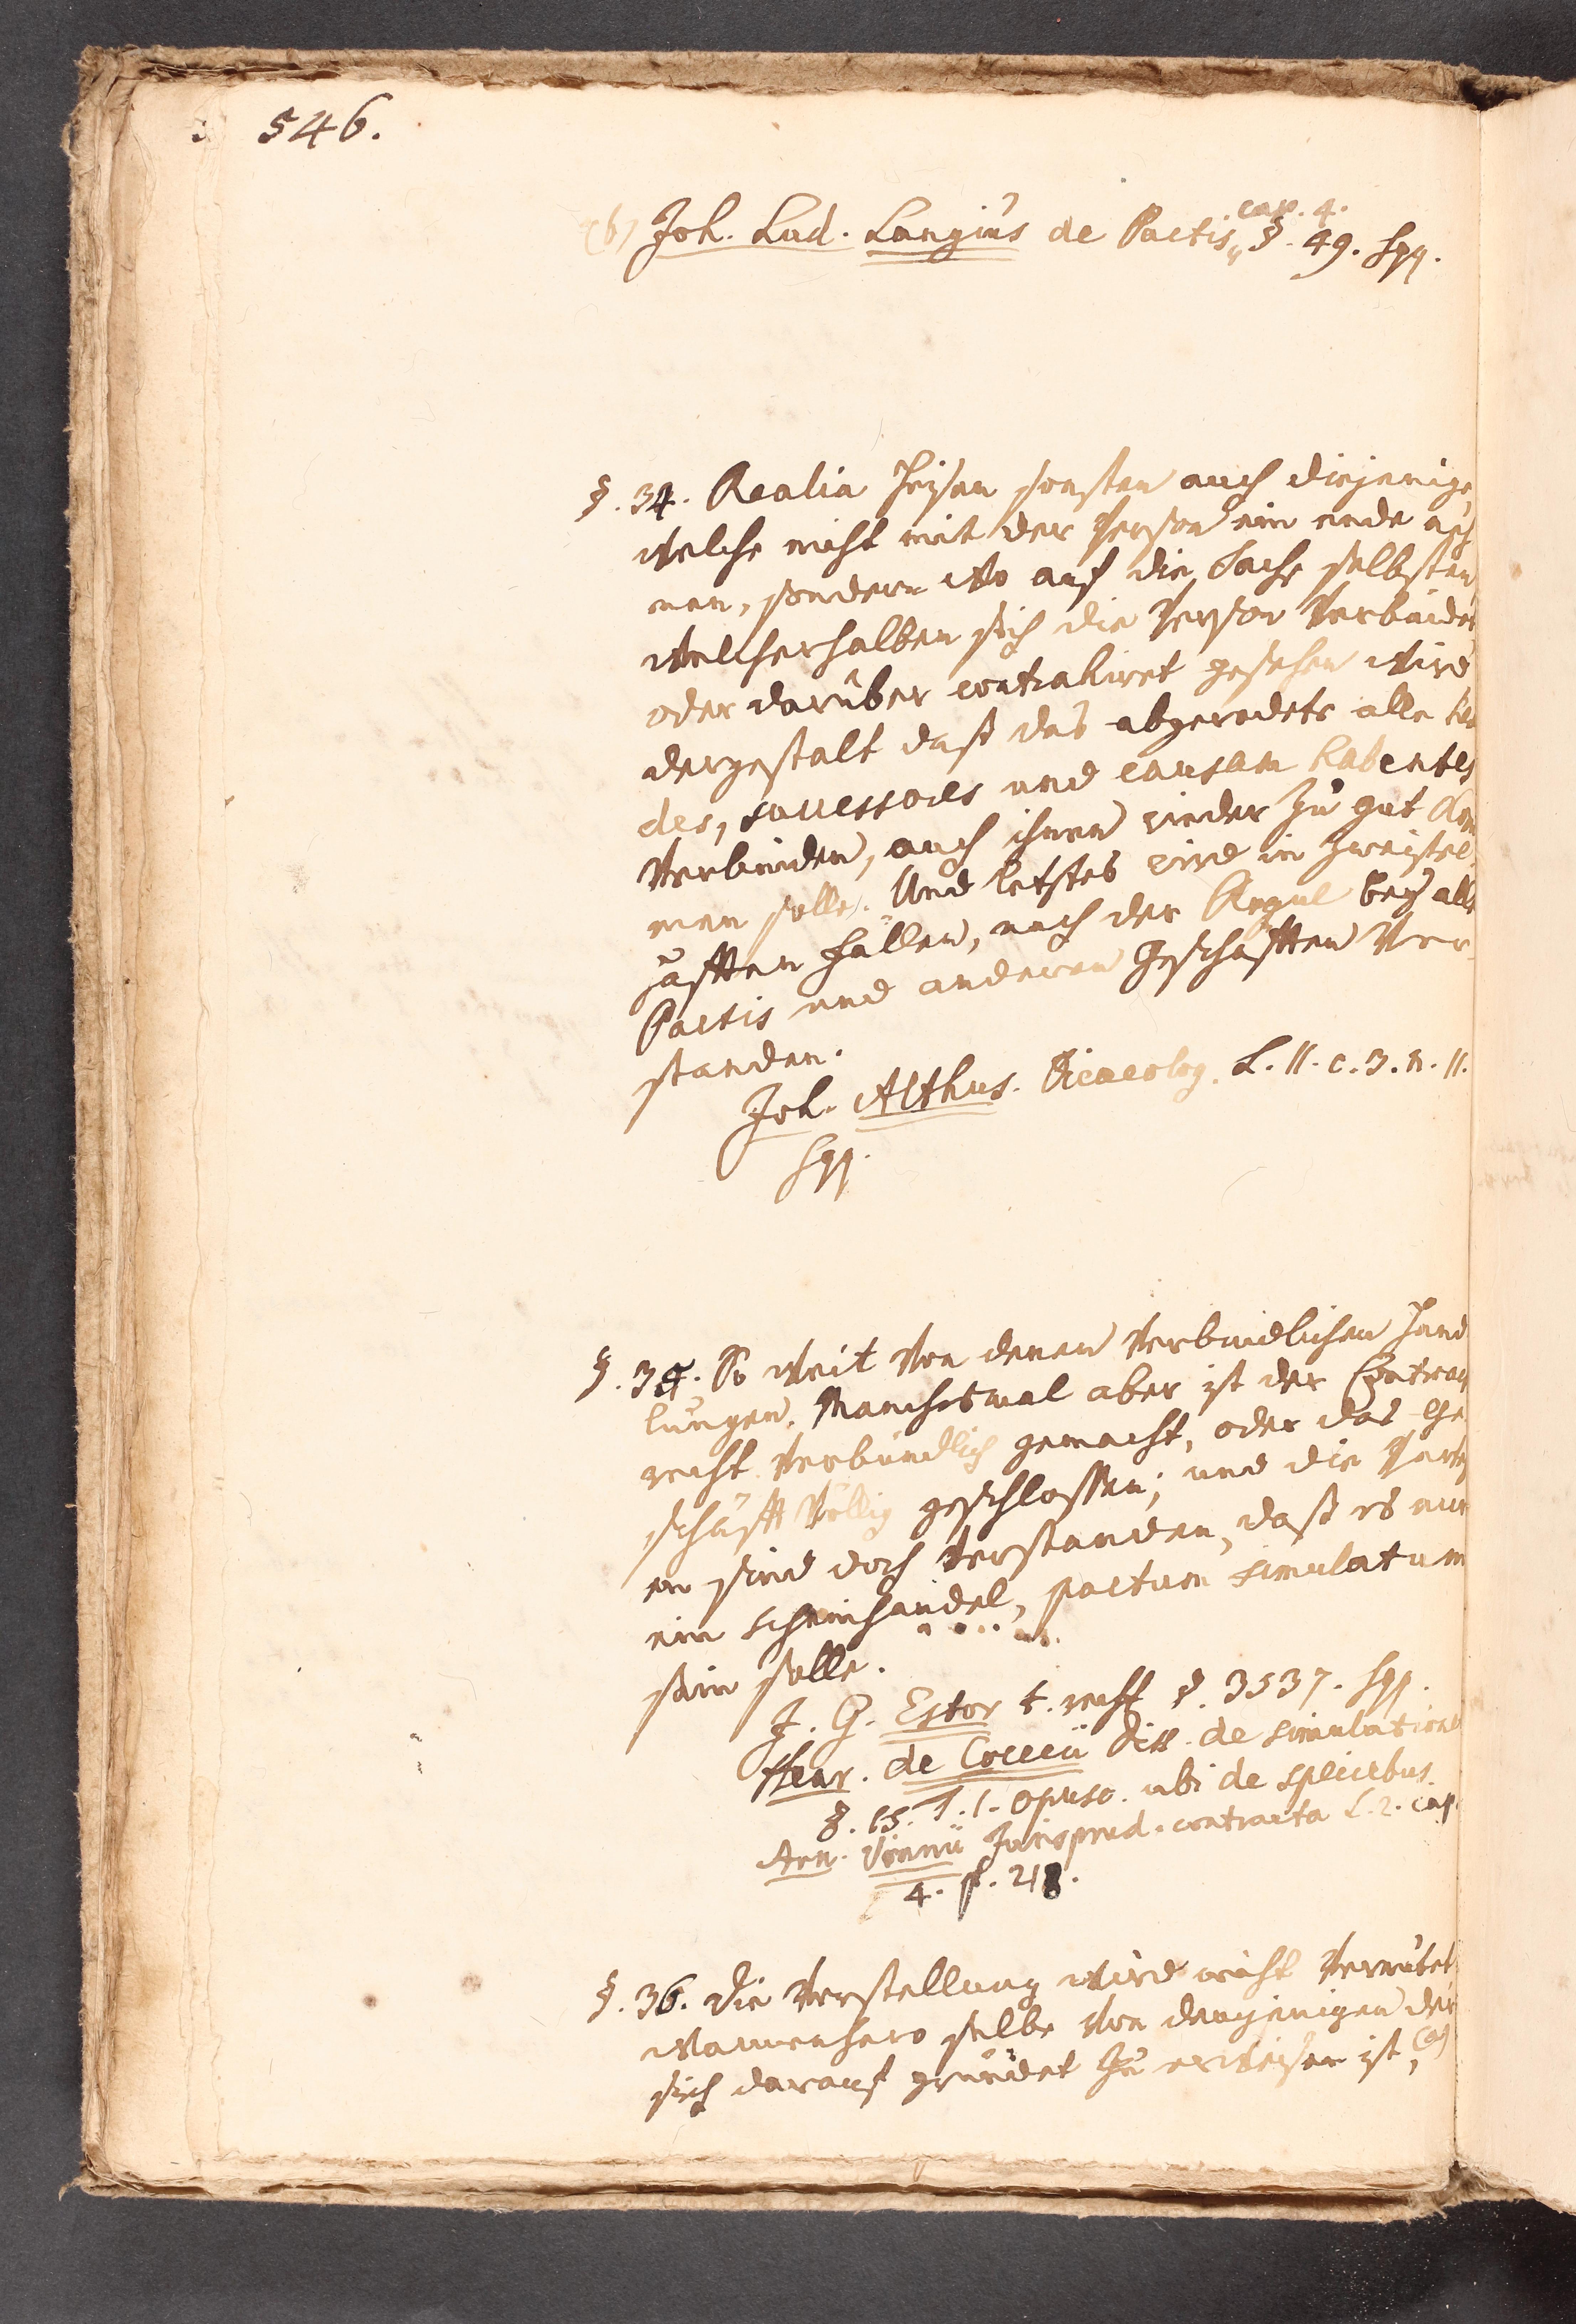 546.
(b) Joh. Lud. Langius de Pactis, cap. 4. §. 49. sqq.
§. 34. Realia heisen sonsten auch diejenige
welche nicht mit der Person ein ende neh
men, sondern wo auf die Sache selbsten
welcherhalben sich die Person verbindet
oder darüber contrahiret gesehen wird
dergestalt daß das abgeredete alle hæ
des, successores und causam habentes
verbinden, auch ihnen wieder zu gut kom
men solle. Und letztes wird in zweifel
hafften fällen, nach der Regul bey alle
Pactis und anderen Geschäfften ver
standen.
Joh. Althus. Dicaeolog. L. II. c. 3. n. 11.
sqq.
§. 35. So weit von denen verbindlichen Hand
lungen. Manchesmal aber ist der Contract
recht verbündlich gemacht, oder das Ge
schäfft völlig geschlossen; und die Parthey
en sind doch verstanden, daß es nur
ein scheinhandel, pactum simulatum
sein solle.
J. G. Estor t. recht §. 3537. sqq.
Henr. de Cocceii diss. de simulatione
§. 15. T. 1. opusc. ubi de speciebus.
Arn. Vinnii Jurisprud. contracta L. 2. cap.
4. p. 218.
§. 36. Die Verstellung wird nicht vermutet
wannenhero selbe von demjenigen der
sich darauf gründet zu erweisen ist, (a)